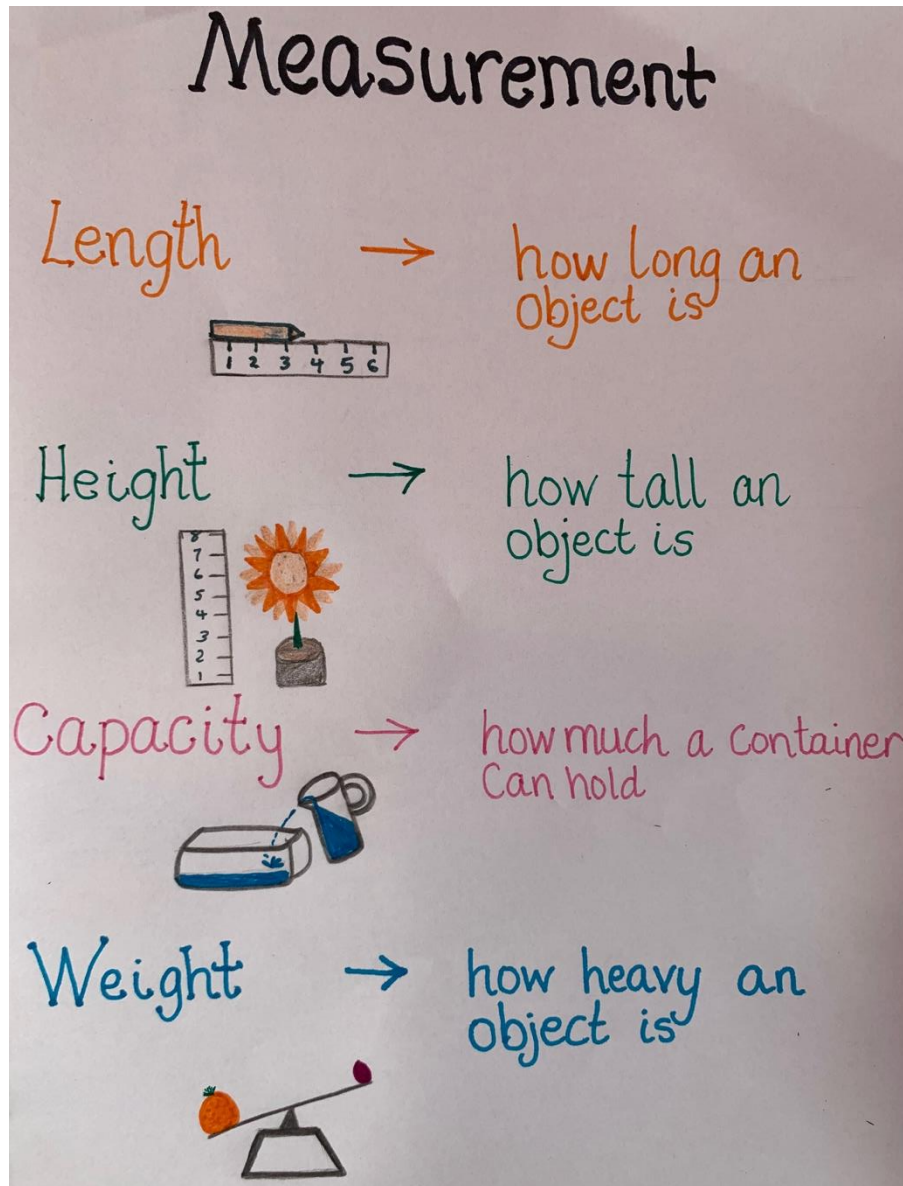 Measurement
Length → how long an
object is
1 2 3 4 5 6
Height → how tall an
object is
8
7
6
5
4
3
2
1
Capacity → how much a container
Can hold
Weight → how heavy an
object is